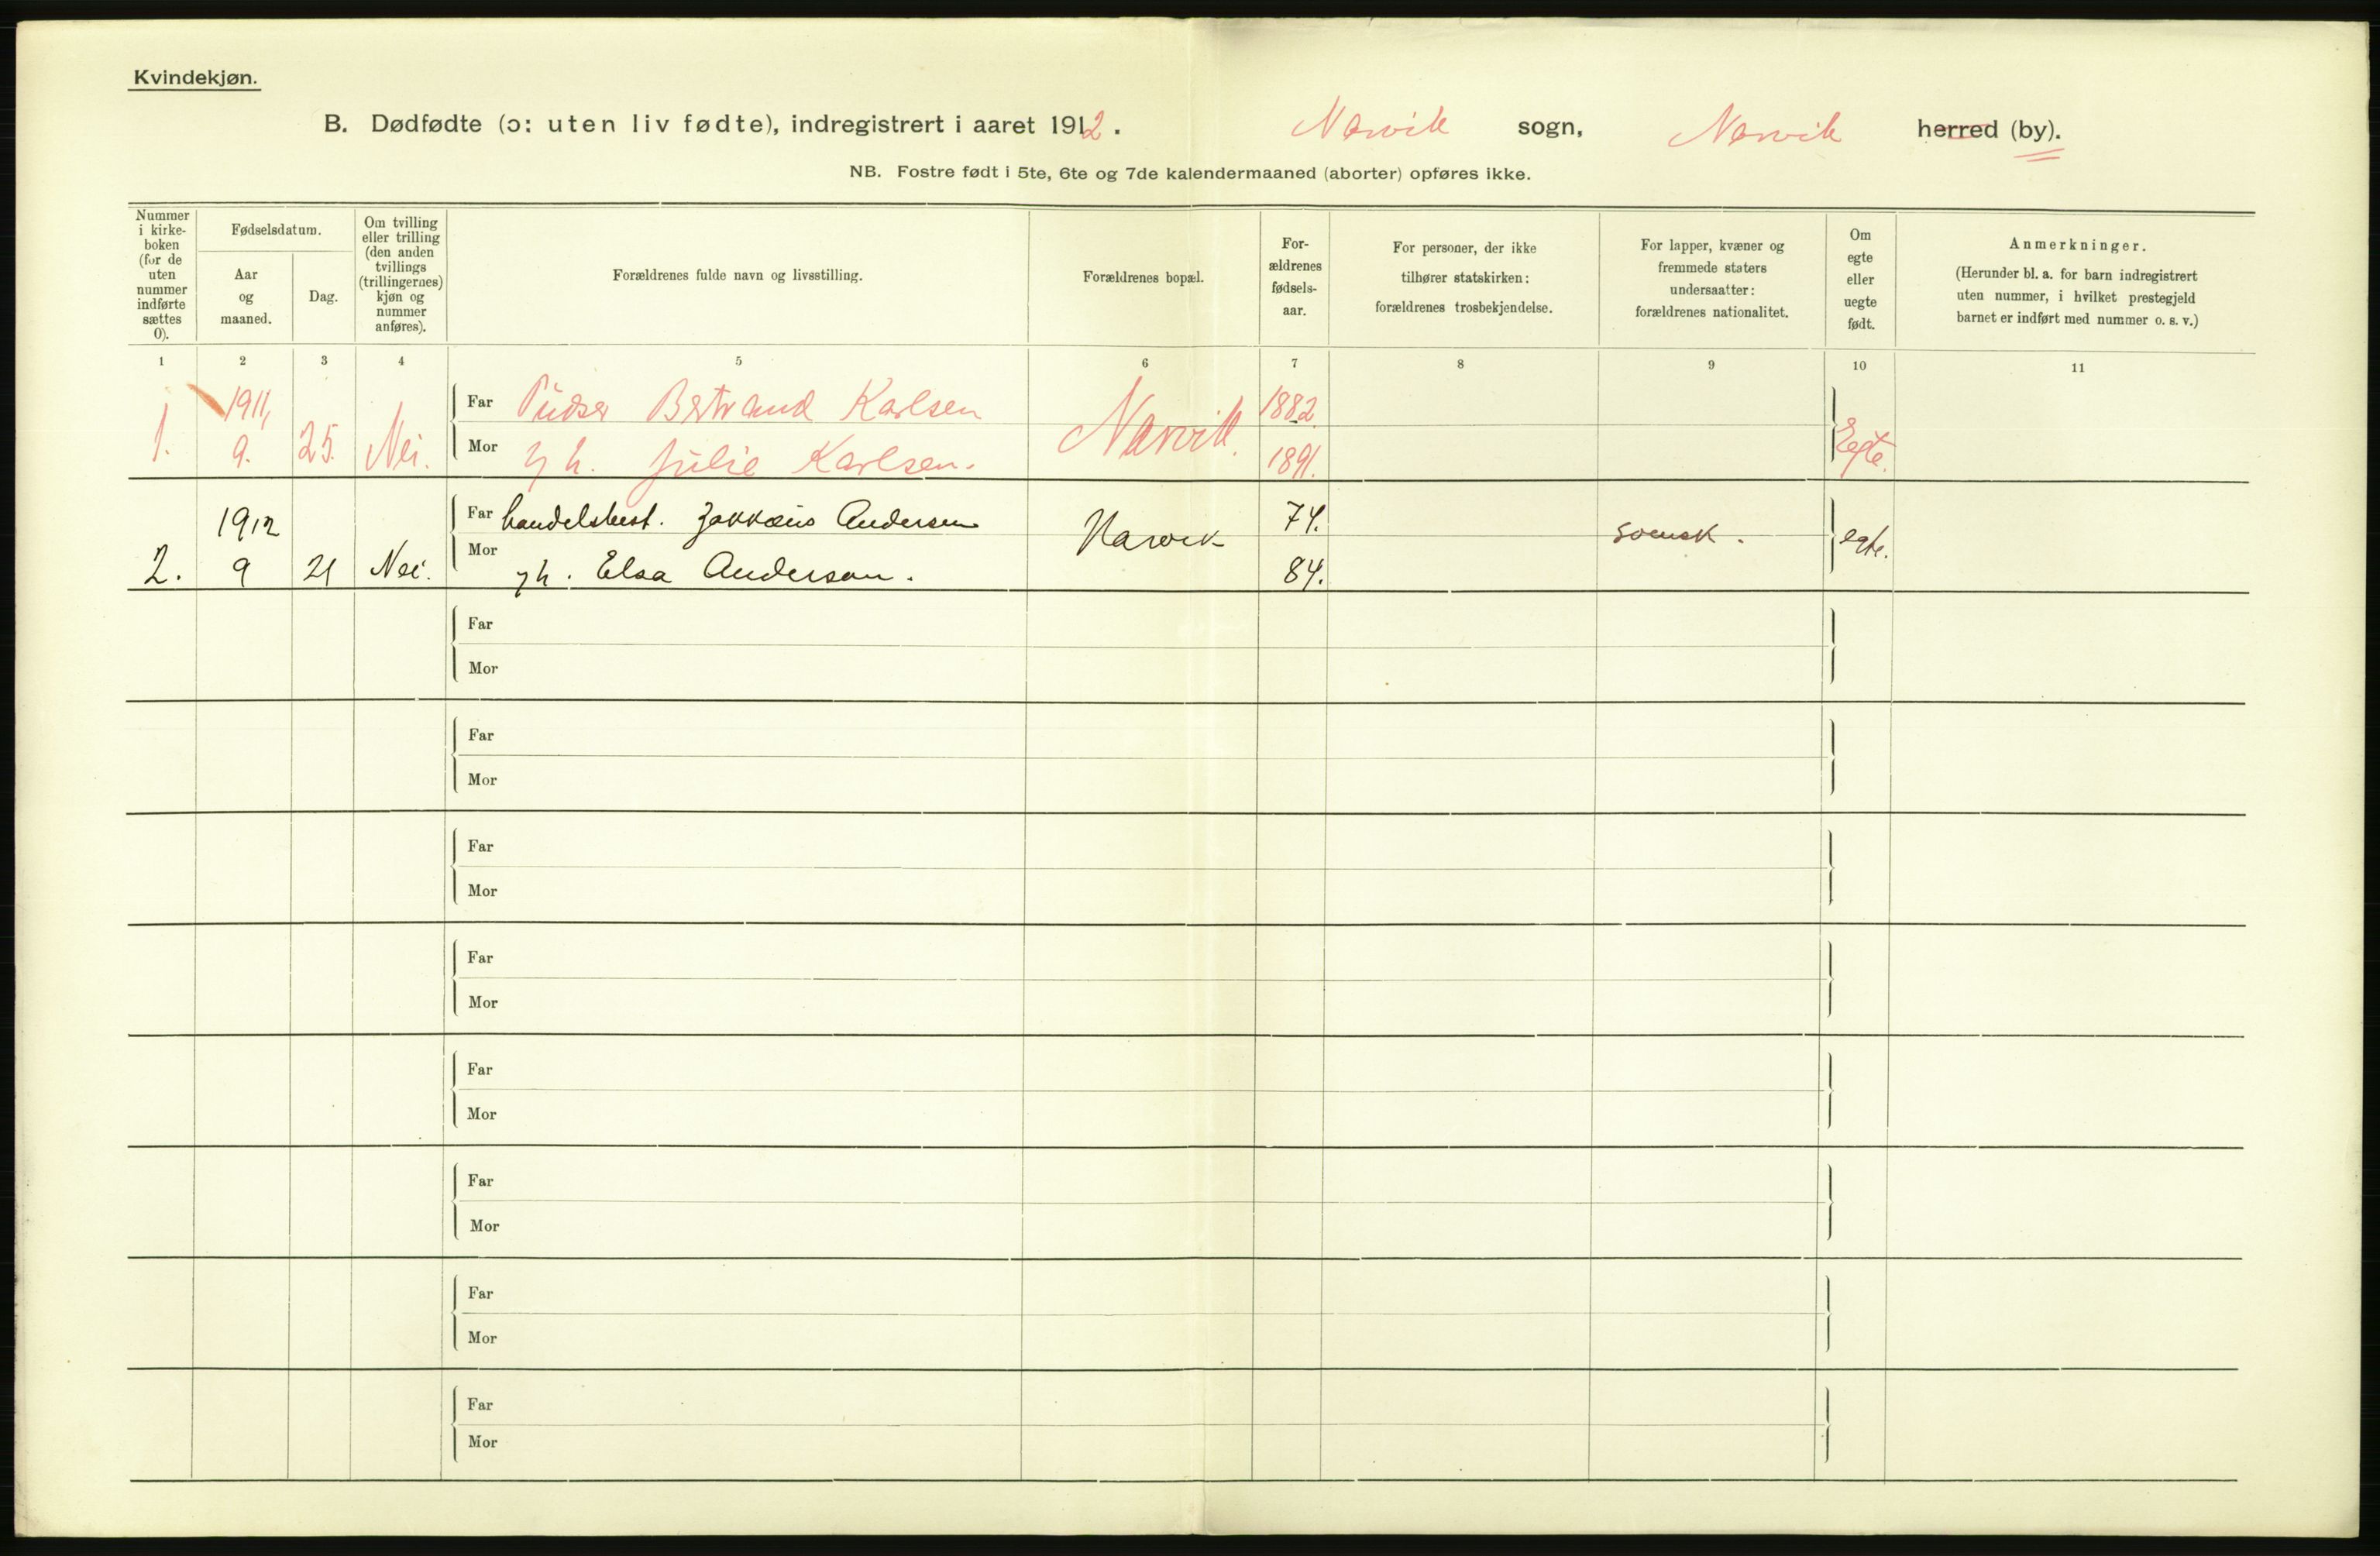 Kvindekjøn.
B. Dødfødte (ɔ: uten liv fødte), indregistrert i aaret 1912. Narvik sogn, Narvik herred (by).
NB. Fostre født i 5te, 6te og 7de kalendermaaned (aborter) opføres ikke.
Nummer i kirke-boken (for de uten nummer indførte sættes 0).
Fødselsdatum.
Aar og maaned.
Dag.
Om tvilling eller trilling (den anden tvillings (trillingernes) kjøn og nummer anføres).
Forældrenes fulde navn og livsstilling.
Forældrenes bopæl.
For-ældrenes fødsels-aar.
For personer, der ikke tilhører statskirken: forældrenes trosbekjendelse.
For lapper, kvæner og fremmede staters undersaatter: forældrenes nationalitet.
Om egte eller uegte født.
Anmerkninger.
(Herunder bl. a. for barn indregistrert uten nummer, i hvilket prestegjeld barnet er indført med nummer o. s. v.)
1 2 3 4 5 6 7 8 9 10 11
1911, Far Pudser Bertrand Karlsen 1882.
1. 9. 25. Nei. Mor y h. Julie Karlsen. Narvik. 1891. Egte.
1912 Far handelsbest. Andersen 74.
2. 9 21 Nei. Mor yh. Elsa Anderson. Narvik 84. svensk. egte.
Far
Mor
Far
Mor
Far
Mor
Far
Mor
Far
Mor
Far
Mor
Far
Mor
Far
Mor